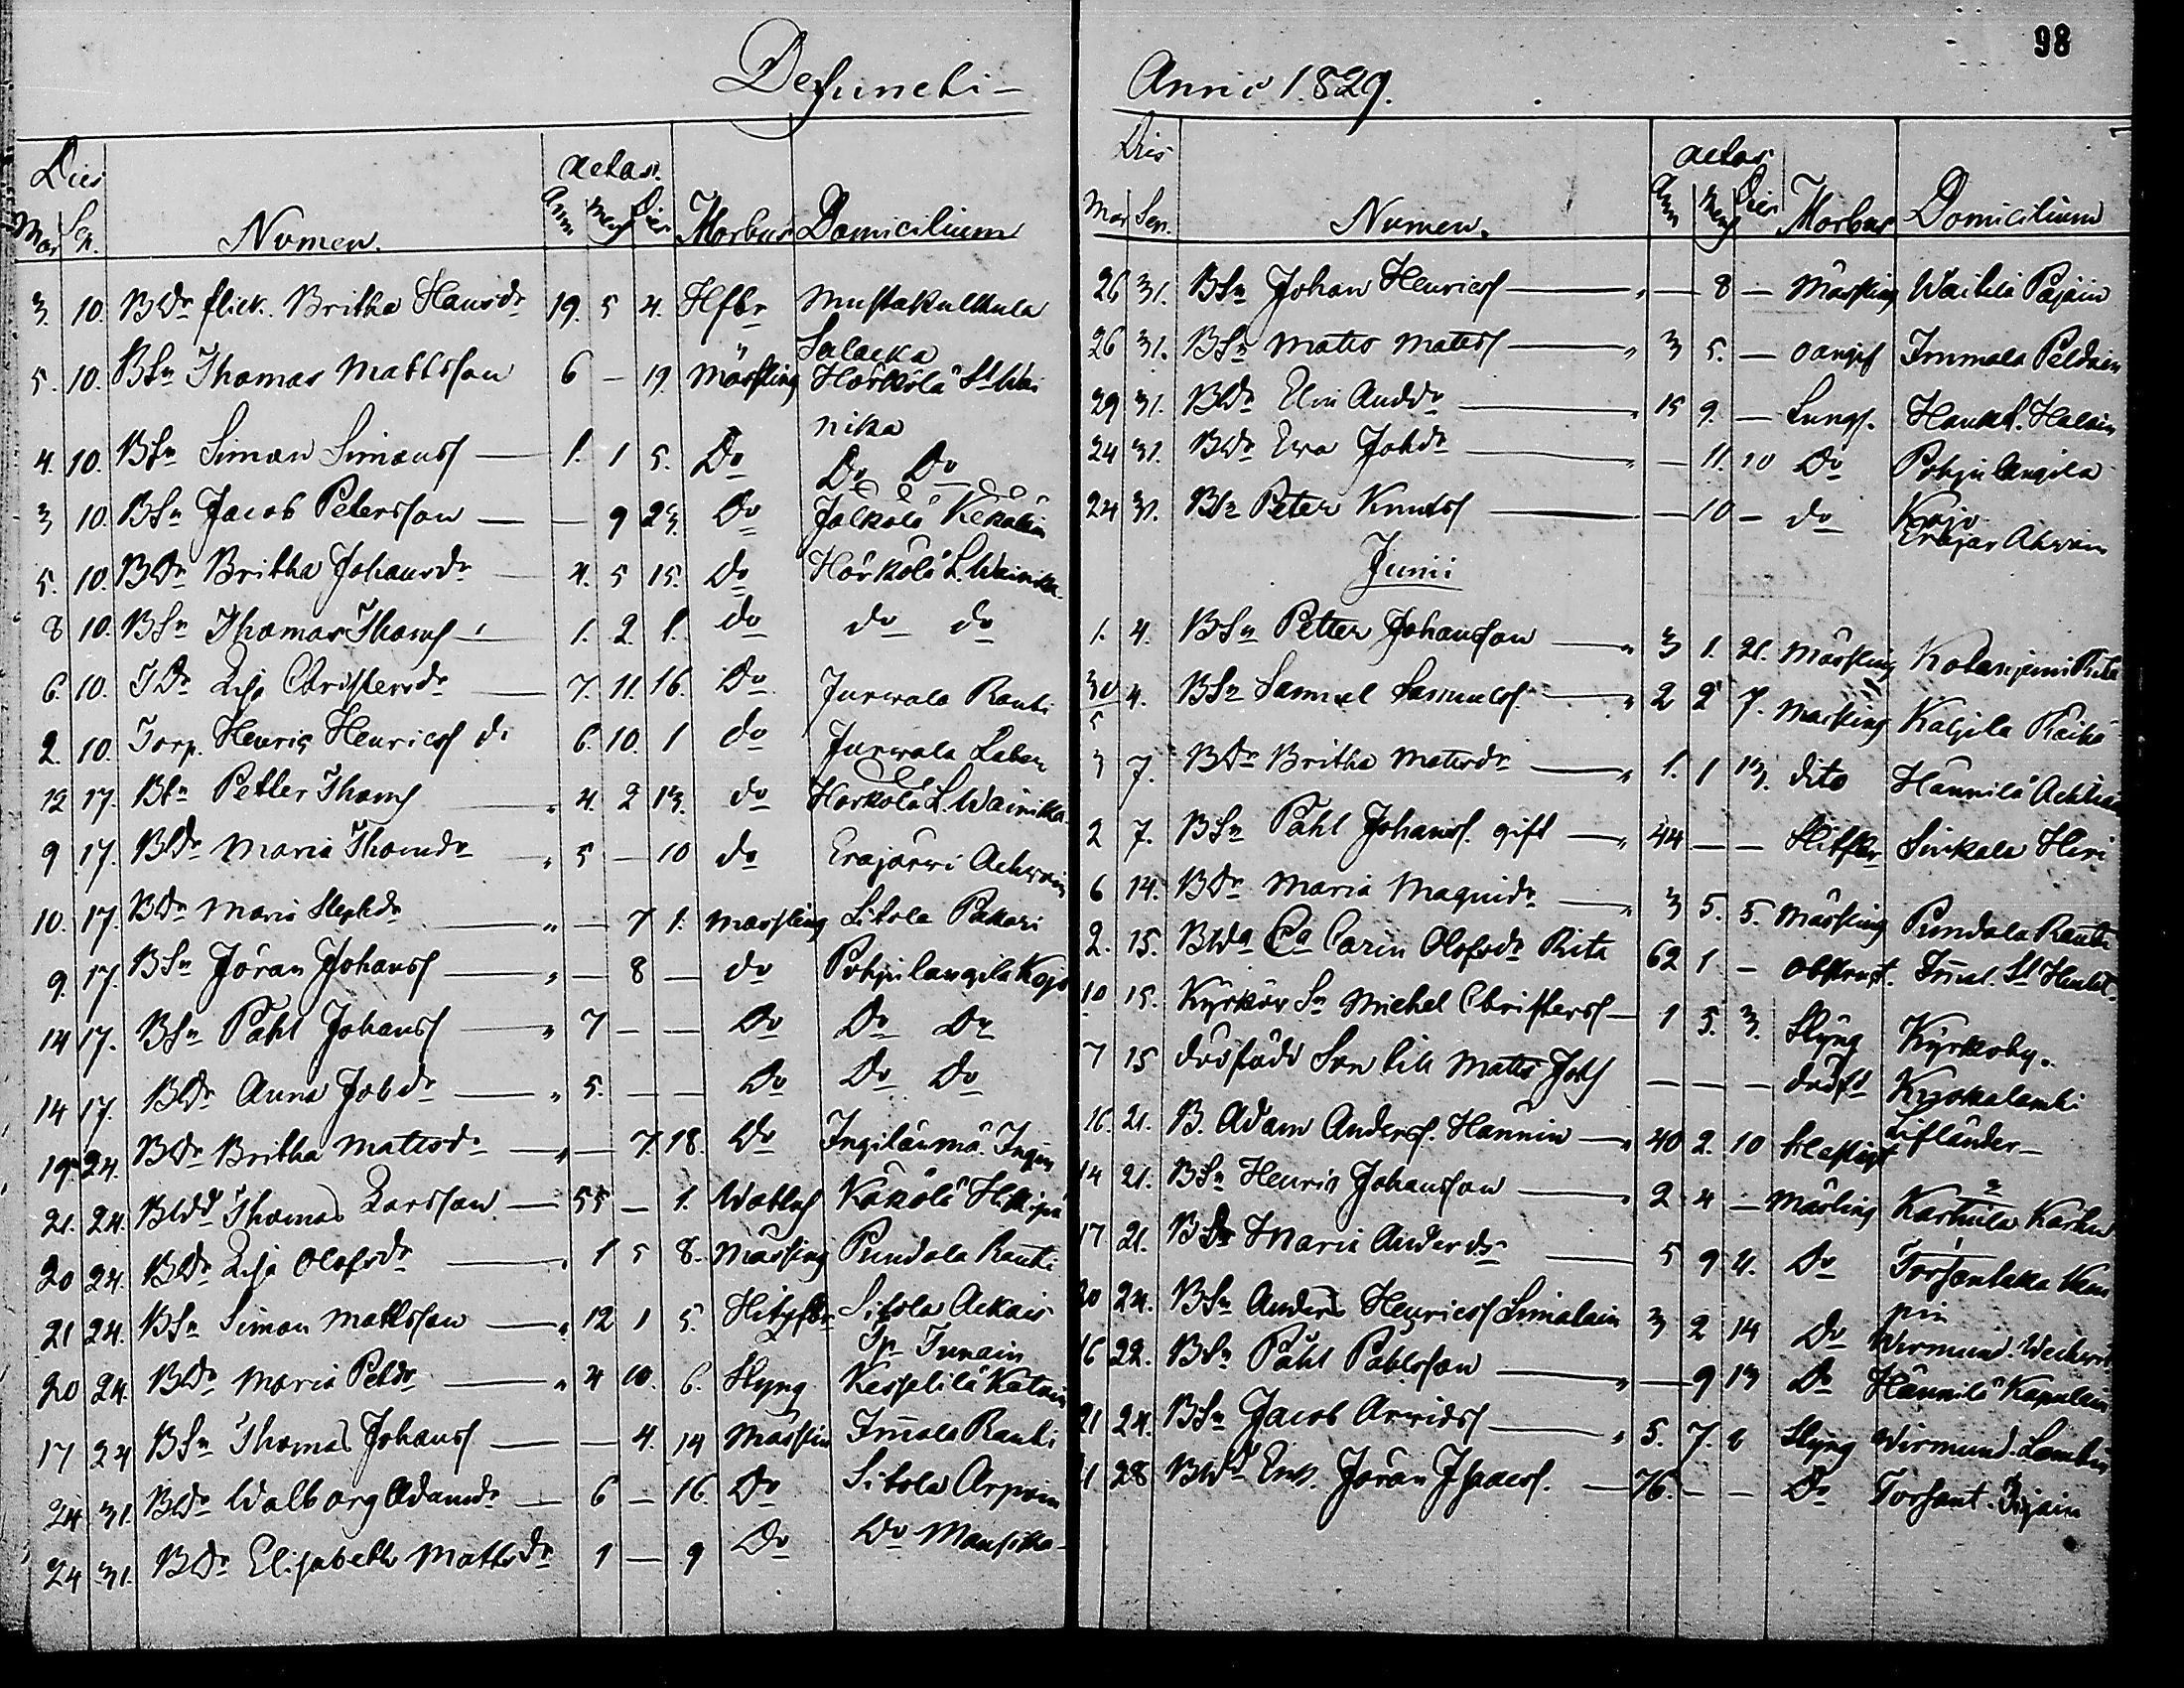 98
Defuncti – Anno 1829.
Dies aetas.
Mor Sep. Nomen. Ann Mens Dies Morbus Domicilium
3. 10. BDr flick. Britha Hansdr 19. 5 4. Hfbr Mustakulkula
Salacka
5. 10. BSn Thomas Mattsson 6 — 19. Mässling Hörkölä St Wai
nika
4. 10. BSn Simon Simonss — 1. 1 5. Do Do Do
3 10. BSn Jacob Petersson — — 9 23. Do Jälkölä Kekäläin
5. 10. BDr Britha Johansdr — 4. 5 15. Do Hörkölä L. Wainika
8 10. BSn Thomas Thoms — 1. 2. 1. do do do
6. 10. TDr Lisa Christersdr — 7. 11. 16. Do Jurwala Rauti
2. 10. Torp. Henric Henricss 6. 10. 1 do Jurwala
12 17. BSn Petter Thoms — 4. 2 13. do Hörkölä L. Wainika
9 17. BDr Maria Thomdr — 5 — 10 do Eräjärwi Achwain
10. 17. BDr Maria Stephdr — — 7 1. Mässling Sitola Pakari
9. 17. BSn Jöran Johanss — — 8 — do Pohjilangila Kojo
14 17. BSn Påhl Johanss — 7 — — Do Do Do
14 17. BDr Anna Johdr — 5. — — Do Do Do
19 24. BDr Britha Matsdr — — 7. 18. Do Ingilänmä. Ingin
21. 24. Thomas Larsson — 55 — 1. Wattus Kökölä
20 24. BDr Lisa Olofsdr — 1 5 8. Mässling Pundola Rauti
21 24. BSn Simon Mattsson — 12 1 5. Hitzfbr Sitola Ackais
Tp Tunain
20 24. BDr Maria Petdr — 4 10. 6. Styng Kesselilä Katain
17 24 BSn Thomas Johanss — — 4. 14 Mässlin Imola Rauti
24 31. BDr Walborg Adamdr — 6 — 16. Do Sitola Arpoin
24 31. BDr Elisabeth Mattsdr 1 — 9 Do Do Mansika
Dies aetas
Mor Sep. Nomen. Ann Mens Dies Morbus Domicilium
26 31. BSn Johan Henricss — — 8 — Mässling Waitila Pajain
26 31. BSn Mats Matss — 3 5. — Immola Peldain
29 31. BDr Elin Anddr — 15 9. — Lungs. Haukk. Halain
24 31. BDr Ewa Johdr — — 11. 10 Do Pohjulangila
Kojo
24 31. BSn Peter Knutss — — 10 — do Eräjär Ahwain
Junii
1. 4. BSn Petter Johansson — 3 1. 21. Mässling Kotasjemi Rita
30/5 4. BSn Samuel Samuelss — 2 2 7. Mässling Kaljela Räihä
3 7. BDr Britha Matsdr — 1. 1 13. dito Hännilä Achtiain
2 7. BSn Påhl Johanss. gift — 44 — — Hitzfbr Sinkola Hiri
6 14. BDr Maria Magnidr — 3 5. 5. Mässling Pundola Rauti
2. 15. BWa Ea Carin Olofsdr Rita 62 1. — obstruct. Imol. St Heikt.
10 15. Kyrkov Sn Michel Christerss — 1 5. 3. Styng Kyrkoby.
7 15 dödfödd Son till Mats Johs — — — dödfd Kurkalambi
16. 21. B. Adam Anderss. Hännin — 40 2. 10 Lifländer —
14 21. BSn Henric Johansson — 2 4 — Mässling Karhula Karhu
17 21. BDr Maria Andersdr — 5 9 4. Do Torsanlaka Kem
pin
20 24. BSn Anders Henricss Simolain 3 2 14 Do Wirmund. Weckw
16 22. BSn Påhl Pohlsson — — 9 13 Do Hännilä Kapulain
21 24. BSn Jacob Arwidss — 5. 7. 8 Styng Wirmund. Lambin
1 28 Enk. Jöran Isaacss. — 76. — — Do Torsant. Pajain